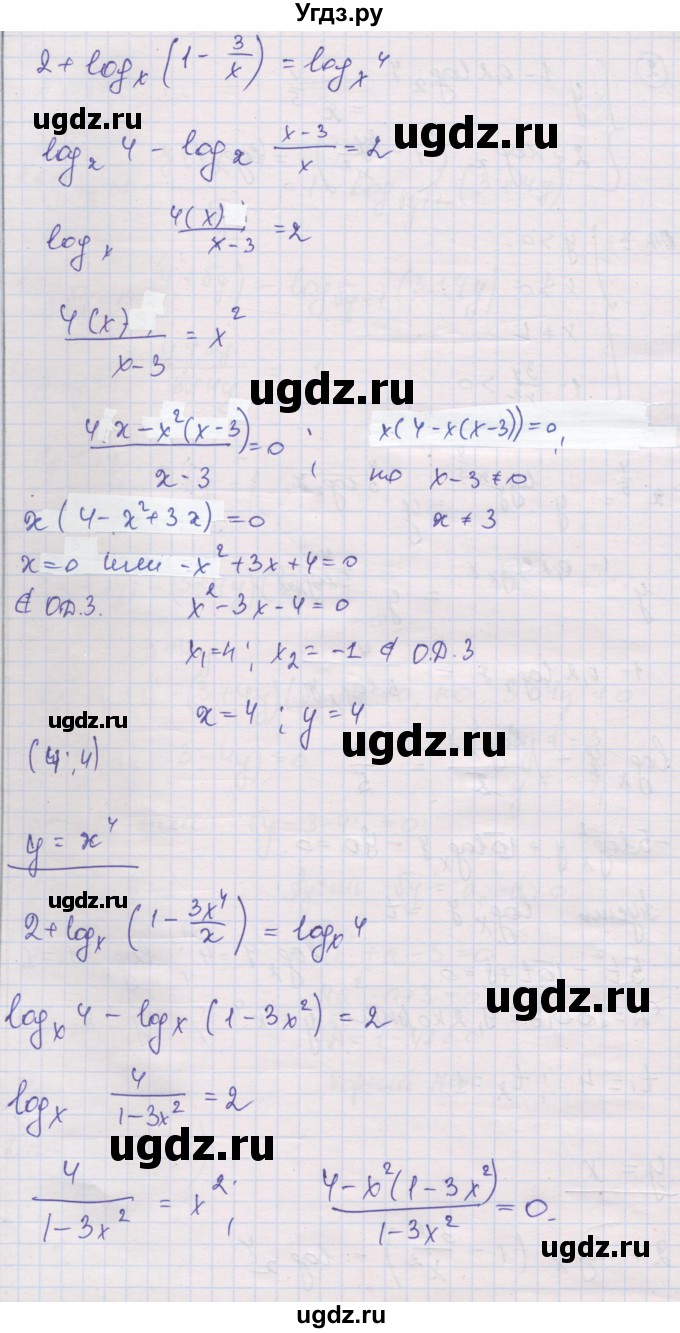 Угдз.ру
2 + log_x (1 - 3/x) = log_x 4
ugdz.ru
ugdz.ru
log_x 4 - log_x (x-3)/x = 2
log_x 4(x)/(x-3) = 2
4(x)/(x-3) = x²
ugdz.ru
(4x - x²(x-3))/(x-3) = 0 ; x(4-x(x-3))=0,
но x-3≠0
x(4-x²+3x)=0 x≠3
x=0 или -x²+3x+4=0
∉ О.Д.З. x²-3x-4=0
x₁=4; x₂=-1 ∉ О.Д.З
ugdz.ru
x=4; y=4
ugdz.ru
(4;4)
y=x⁴
ugdz.ru
2+log_x (1 - 3x⁴/x) = log_x 4
ugdz.ru
log_x 4 - log_x (1-3x²) = 2
log_x 4/(1-3x²) = 2
ugdz.ru
4/(1-3x²) = x²; (4-x²(1-3x²))/(1-3x²) = 0.
ugdz.ru
ugdz.ru